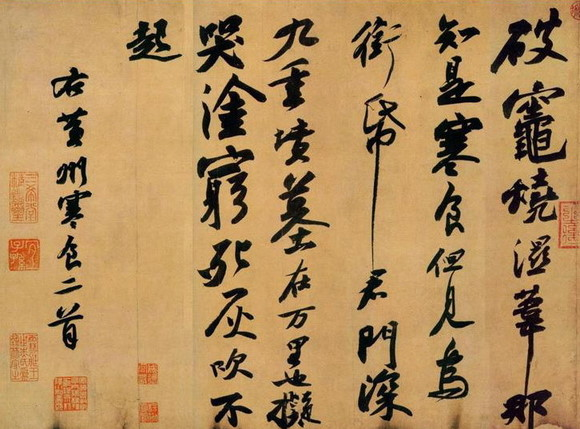 破竈燒濕葦那
知是寒食但見烏
銜帋君門深
九重墳墓在万里也擬
哭塗窮死灰吹不
起
右黄州寒食二首